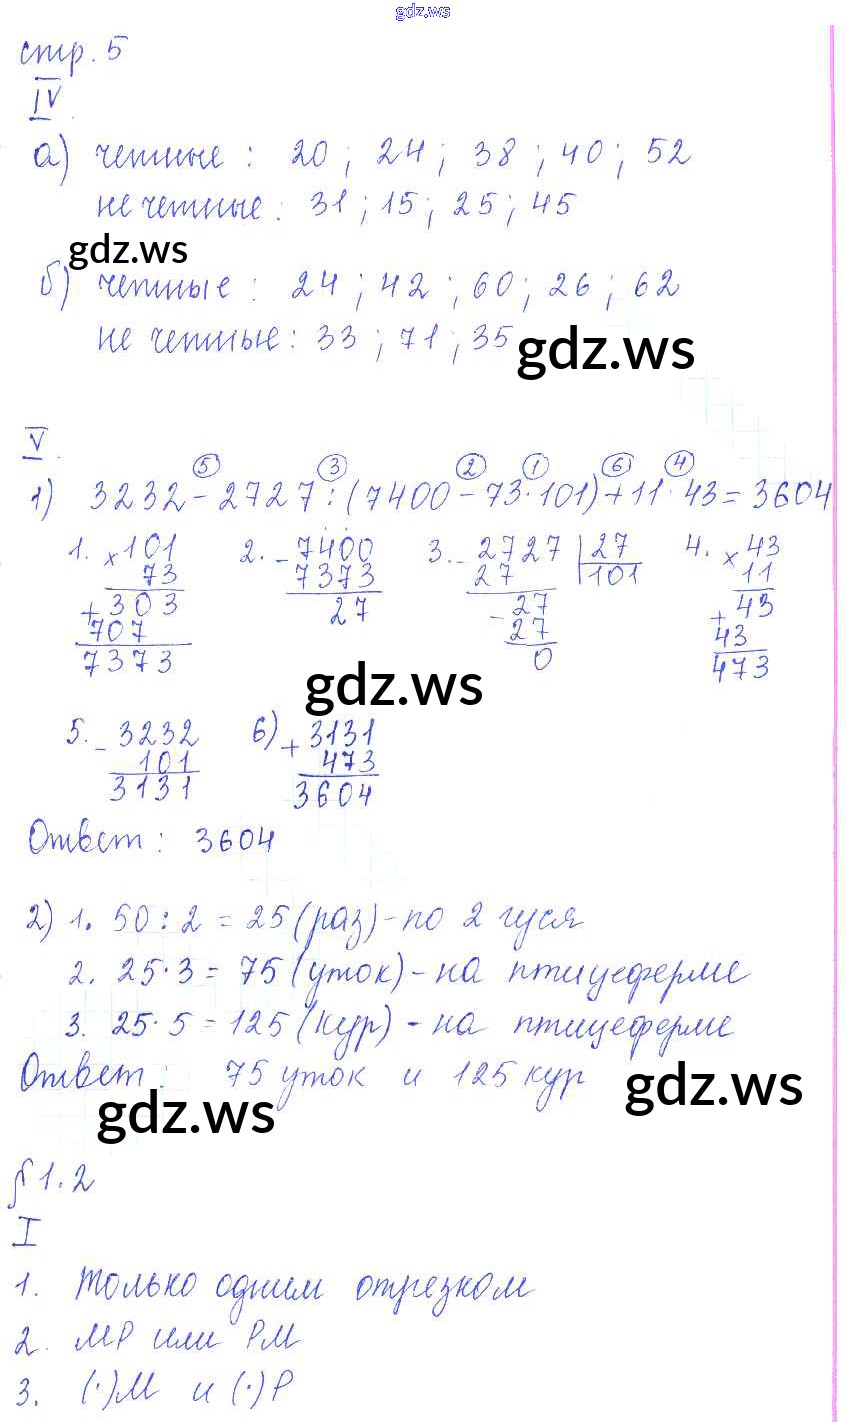 gdz.ws
стр. 5
IV
а) четные : 20 ; 24 ; 38 ; 40 ; 52
нечетные : 31 ; 15 ; 25 ; 45
gdz.ws
б) четные : 24 ; 42 ; 60 ; 26 ; 62
не четные : 33 ; 71 ; 35
gdz.ws
V.
⑤ ③ ② ① ⑥ ④
1) 3232 - 2727 : (7400 - 73 · 101) + 11 · 43 = 3604
1. × 101 2. - 7400 3. - 2727 | 27 4. × 43
73 7373 27 101 11
+ 303 27 - 27 + 43
707 27 43
7373 0 473
gdz.ws
5. - 3232 6) + 3131
101 473
3131 3604
Ответ : 3604
2) 1. 50 : 2 = 25 (раз) - по 2 гуся
2. 25 · 3 = 75 (уток) - на птицеферме
3. 25 · 5 = 125 (кур) - на птицеферме
Ответ : 75 уток и 125 кур
gdz.ws
gdz.ws
§ 1.2
I
1. Только одним отрезком
2. МР или РМ
3. (·)М и (·)Р